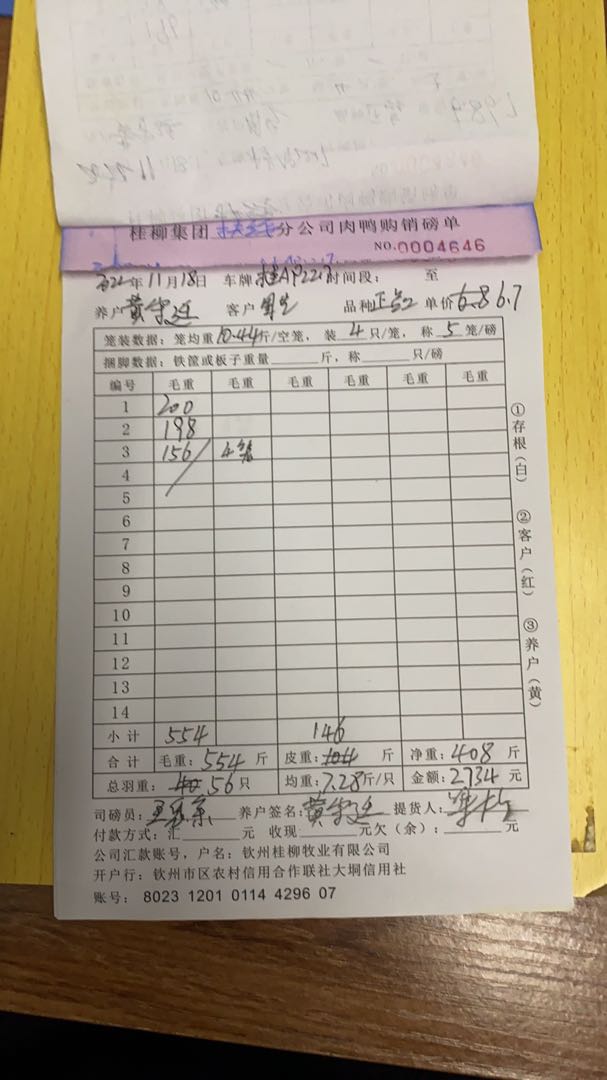 桂柳集团 分公司肉鸭购销磅单
NO.0004646
2022年11月18日 车牌 桂AP2217 时间段： 至
养户 黄 客户 品种 正品2 单价 6.8 6.7
笼装数据：笼均重10.44斤/空笼，装 4 只/笼，称 5 笼/磅
捆脚数据：铁筐或板子重量 斤，称 只/磅
编号 毛重 毛重 毛重 毛重 毛重 毛重
1 200
2 198
3 156 4笼
4
5
6
7
8
9
10
11
12
13
14
小计 554 146
合计 毛重：554 斤 皮重：104 斤 净重：408 斤
总羽重：40 56 只 均重：7.28斤/只 金额：2734 元
司磅员： 养户签名：黄 提货人：
付款方式：汇 元 收现 元欠（余）： 元
公司汇款账号，户名：钦州桂柳牧业有限公司
开户行：钦州市区农村信用合作联社大垌信用社
账号：8023 1201 0114 4296 07
①存根（白）
②客户（红）
③养户（黄）